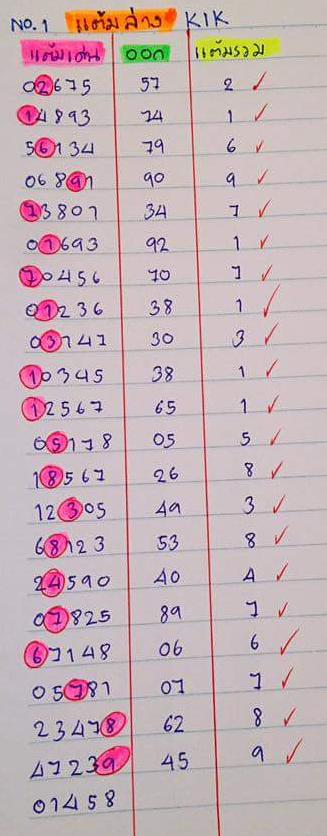 NO.1 แต้มล่าง KIK
แต้มเด่น ออก แต้มรวม
02675 57 2 ✓
14893 74 1 ✓
56134 79 6 ✓
06891 90 9 ✓
73801 34 7 ✓
01693 92 1 ✓
70456 70 7 ✓
01236 38 1 ✓
03747 30 3 ✓
10345 38 1 ✓
12567 65 1 ✓
05178 05 5 ✓
18567 26 8 ✓
12305 49 3 ✓
68123 53 8 ✓
24590 40 4 ✓
07825 89 7 ✓
67148 06 6 ✓
05781 07 7 ✓
23478 62 8 ✓
47239 45 9 ✓
01458